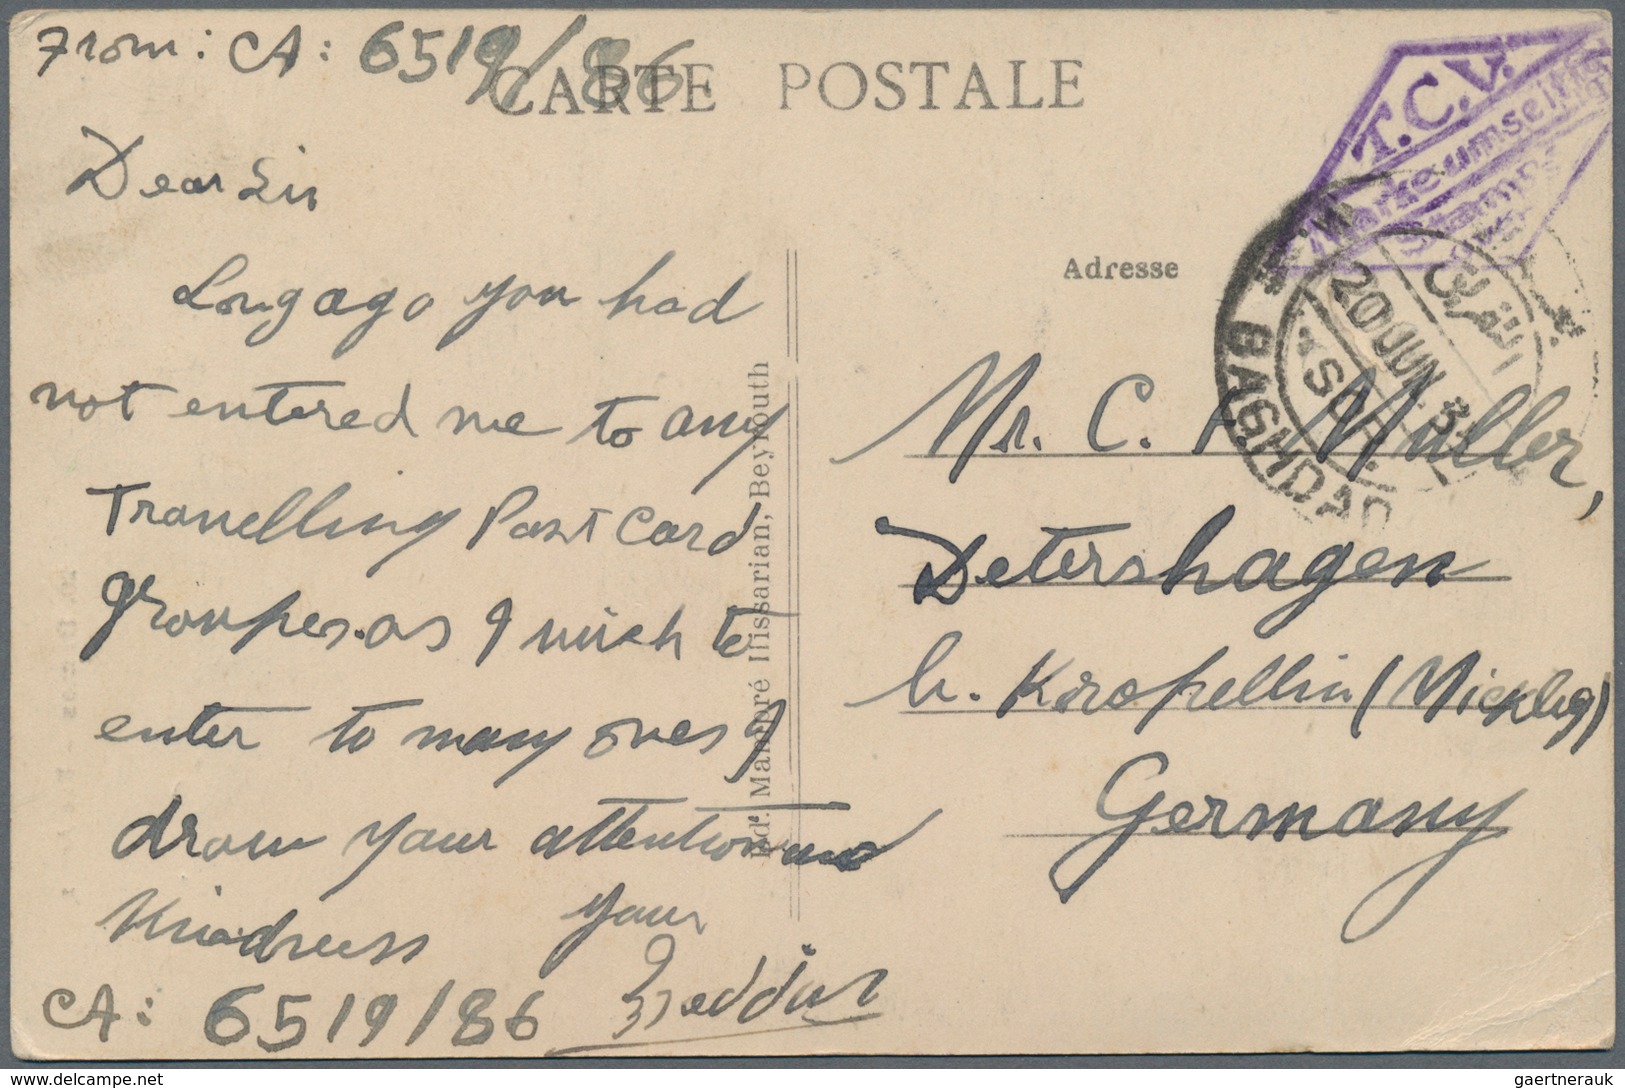 From: CA: 6519/86
CARTE POSTALE
T.C.V.
Markeumseitig
Stamps
Dear Sir
Long ago you had
not entered me to any
Travelling Post Card
groupes. as I wish to
enter to many ones I
draw your attention
Kindness your
CA: 6519/86
Ed. Mampré Ilissarian, Beyrouth
Adresse
BAGHDAD
20 JUN. 3
العراق
Mr. C. Muller,
Detershagen
b. Kröpellin (Mickbg)
Germany
gaertnerauk @ delcampe.net